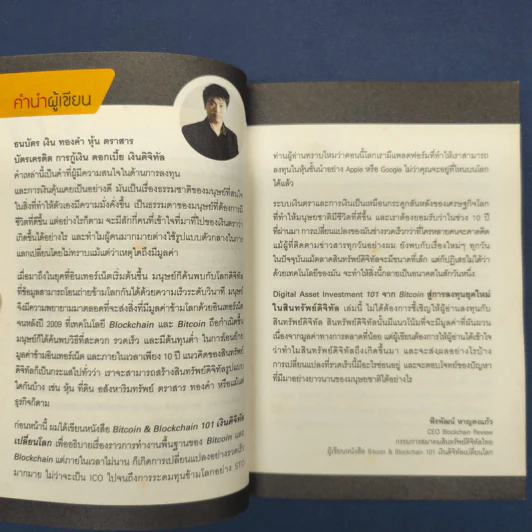 คำนำผู้เขียน
ธนบัตร เงิน ทองคำ หุ้น ตราสาร
บัตรเครดิต การกู้เงิน ดอกเบี้ย เงินดิจิทัล
คำเหล่านี้เป็นคำที่ผู้มีความสนใจในด้านการลงทุน
และการเงินคุ้นเคยเป็นอย่างดี มันเป็นเรื่องธรรมชาติของมนุษย์ที่สนใจ
ในสิ่งที่ทำให้ตัวเองมีความมั่งคั่งขึ้น เป็นธรรมดาของมนุษย์ที่ต้องการมี
ชีวิตที่ดีขึ้น แต่อย่างไรก็ตาม จะมีสักกี่คนที่เข้าใจที่มาที่ไปของเงินตราว่า
เกิดขึ้นได้อย่างไร และทำไมผู้คนมากมายต่างใช้รูปแบบตัวกลางในการ
แลกเปลี่ยนโดยไม่ทราบแม้แต่ว่าเหตุใดถึงมีมูลค่า
เมื่อมาถึงในยุคที่อินเทอร์เน็ตเริ่มต้นขึ้น มนุษย์ก็ค้นพบกับโลกดิจิทัล
ที่ข้อมูลสามารถโอนถ่ายข้ามโลกกันได้ด้วยความเร็วระดับวินาที มนุษย์
จึงมีความพยายามมาตลอดที่จะส่งสิ่งที่มีมูลค่าข้ามโลกด้วยอินเทอร์เน็ต
จนหลังปี 2009 ที่เทคโนโลยี Blockchain และ Bitcoin ถือกำเนิดขึ้น
มนุษย์ก็ได้ค้นพบวิธีที่สะดวก รวดเร็ว และมีต้นทุนต่ำ ในการโอนย้าย
มูลค่าข้ามอินเทอร์เน็ต และภายในเวลาเพียง 10 ปี แนวคิดของสินทรัพย์
ดิจิทัลก็เป็นกระแสไปทั่วว่า เราจะสามารถสร้างสินทรัพย์ดิจิทัลจากรูปแบบ
ใดกันบ้าง เช่น หุ้น ที่ดิน อสังหาริมทรัพย์ ตราสาร ทองคำ หรือแม้แต่
ธุรกิจก็ตาม
ก่อนหน้านี้ ผมได้เขียนหนังสือ Bitcoin & Blockchain 101 เงินดิจิทัล
เปลี่ยนโลก เพื่ออธิบายเรื่องราวการทำงานพื้นฐานของ Bitcoin และ
Blockchain แต่ภายในเวลาไม่นาน ก็เกิดการเปลี่ยนแปลงอย่างรวดเร็ว
มากมาย ไม่ว่าจะเป็น ICO ไปจนถึงการระดมทุนข้ามโลกอย่าง STO
ท่านผู้อ่านทราบไหมว่าตอนนี้โลกเรามีแพลตฟอร์มที่ทำให้เราสามารถ
ลงทุนในหุ้นชั้นนำอย่าง Apple หรือ Google ไม่ว่าคุณจะอยู่ที่ไหนบนโลก
ได้แล้ว
ระบบเงินตราและการเงินเป็นเหมือนกระดูกสันหลังของเศรษฐกิจโลก
ที่ทำให้มนุษยชาติมีชีวิตที่ดีขึ้น และเราต้องยอมรับว่าในช่วง 10 ปี
ที่ผ่านมา การเปลี่ยนแปลงของมันช่างรวดเร็วกว่าที่ใครหลายคนจะคาดคิด
แม้ผู้ที่ติดตามข่าวสารทุกวันอย่างผม ยังพบกับเรื่องใหม่ๆ ทุกวัน
ในปัจจุบันแม้ตลาดสินทรัพย์ดิจิทัลจะมีขนาดที่เล็ก แต่ก็ปฏิเสธไม่ได้ว่า
ด้วยเทคโนโลยีของมัน จะทำให้สิ่งนี้กลายเป็นอนาคตในสักวันหนึ่ง
Digital Asset Investment 101 จาก Bitcoin สู่การลงทุนยุคใหม่
ในสินทรัพย์ดิจิทัล เล่มนี้ ไม่ได้ต้องการชี้เชิญให้ผู้อ่านลงทุนกับ
สินทรัพย์ดิจิทัล สินทรัพย์ดิจิทัลนั้นมีแนวโน้มที่จะมีมูลค่าที่ผันผวน
เนื่องจากมูลค่าทางการตลาดที่น้อย แต่ผู้เขียนต้องการให้ผู้อ่านได้เข้าใจ
ว่าทำไมสินทรัพย์ดิจิทัลถึงเกิดขึ้นมา และจะส่งผลอย่างไรบ้าง
การเปลี่ยนแปลงที่รวดเร็วนี้มีอะไรซ่อนอยู่ และจะตอบโจทย์ของปัญหา
ที่มีมาอย่างยาวนานของมนุษยชาติได้อย่างไร
พิรพัฒน์ หาญคงแก้ว
CEO Blockchain Review
กรรมการสมาคมสินทรัพย์ดิจิทัลไทย
ผู้เขียนหนังสือ Bitcoin & Blockchain 101 เงินดิจิทัลเปลี่ยนโลก